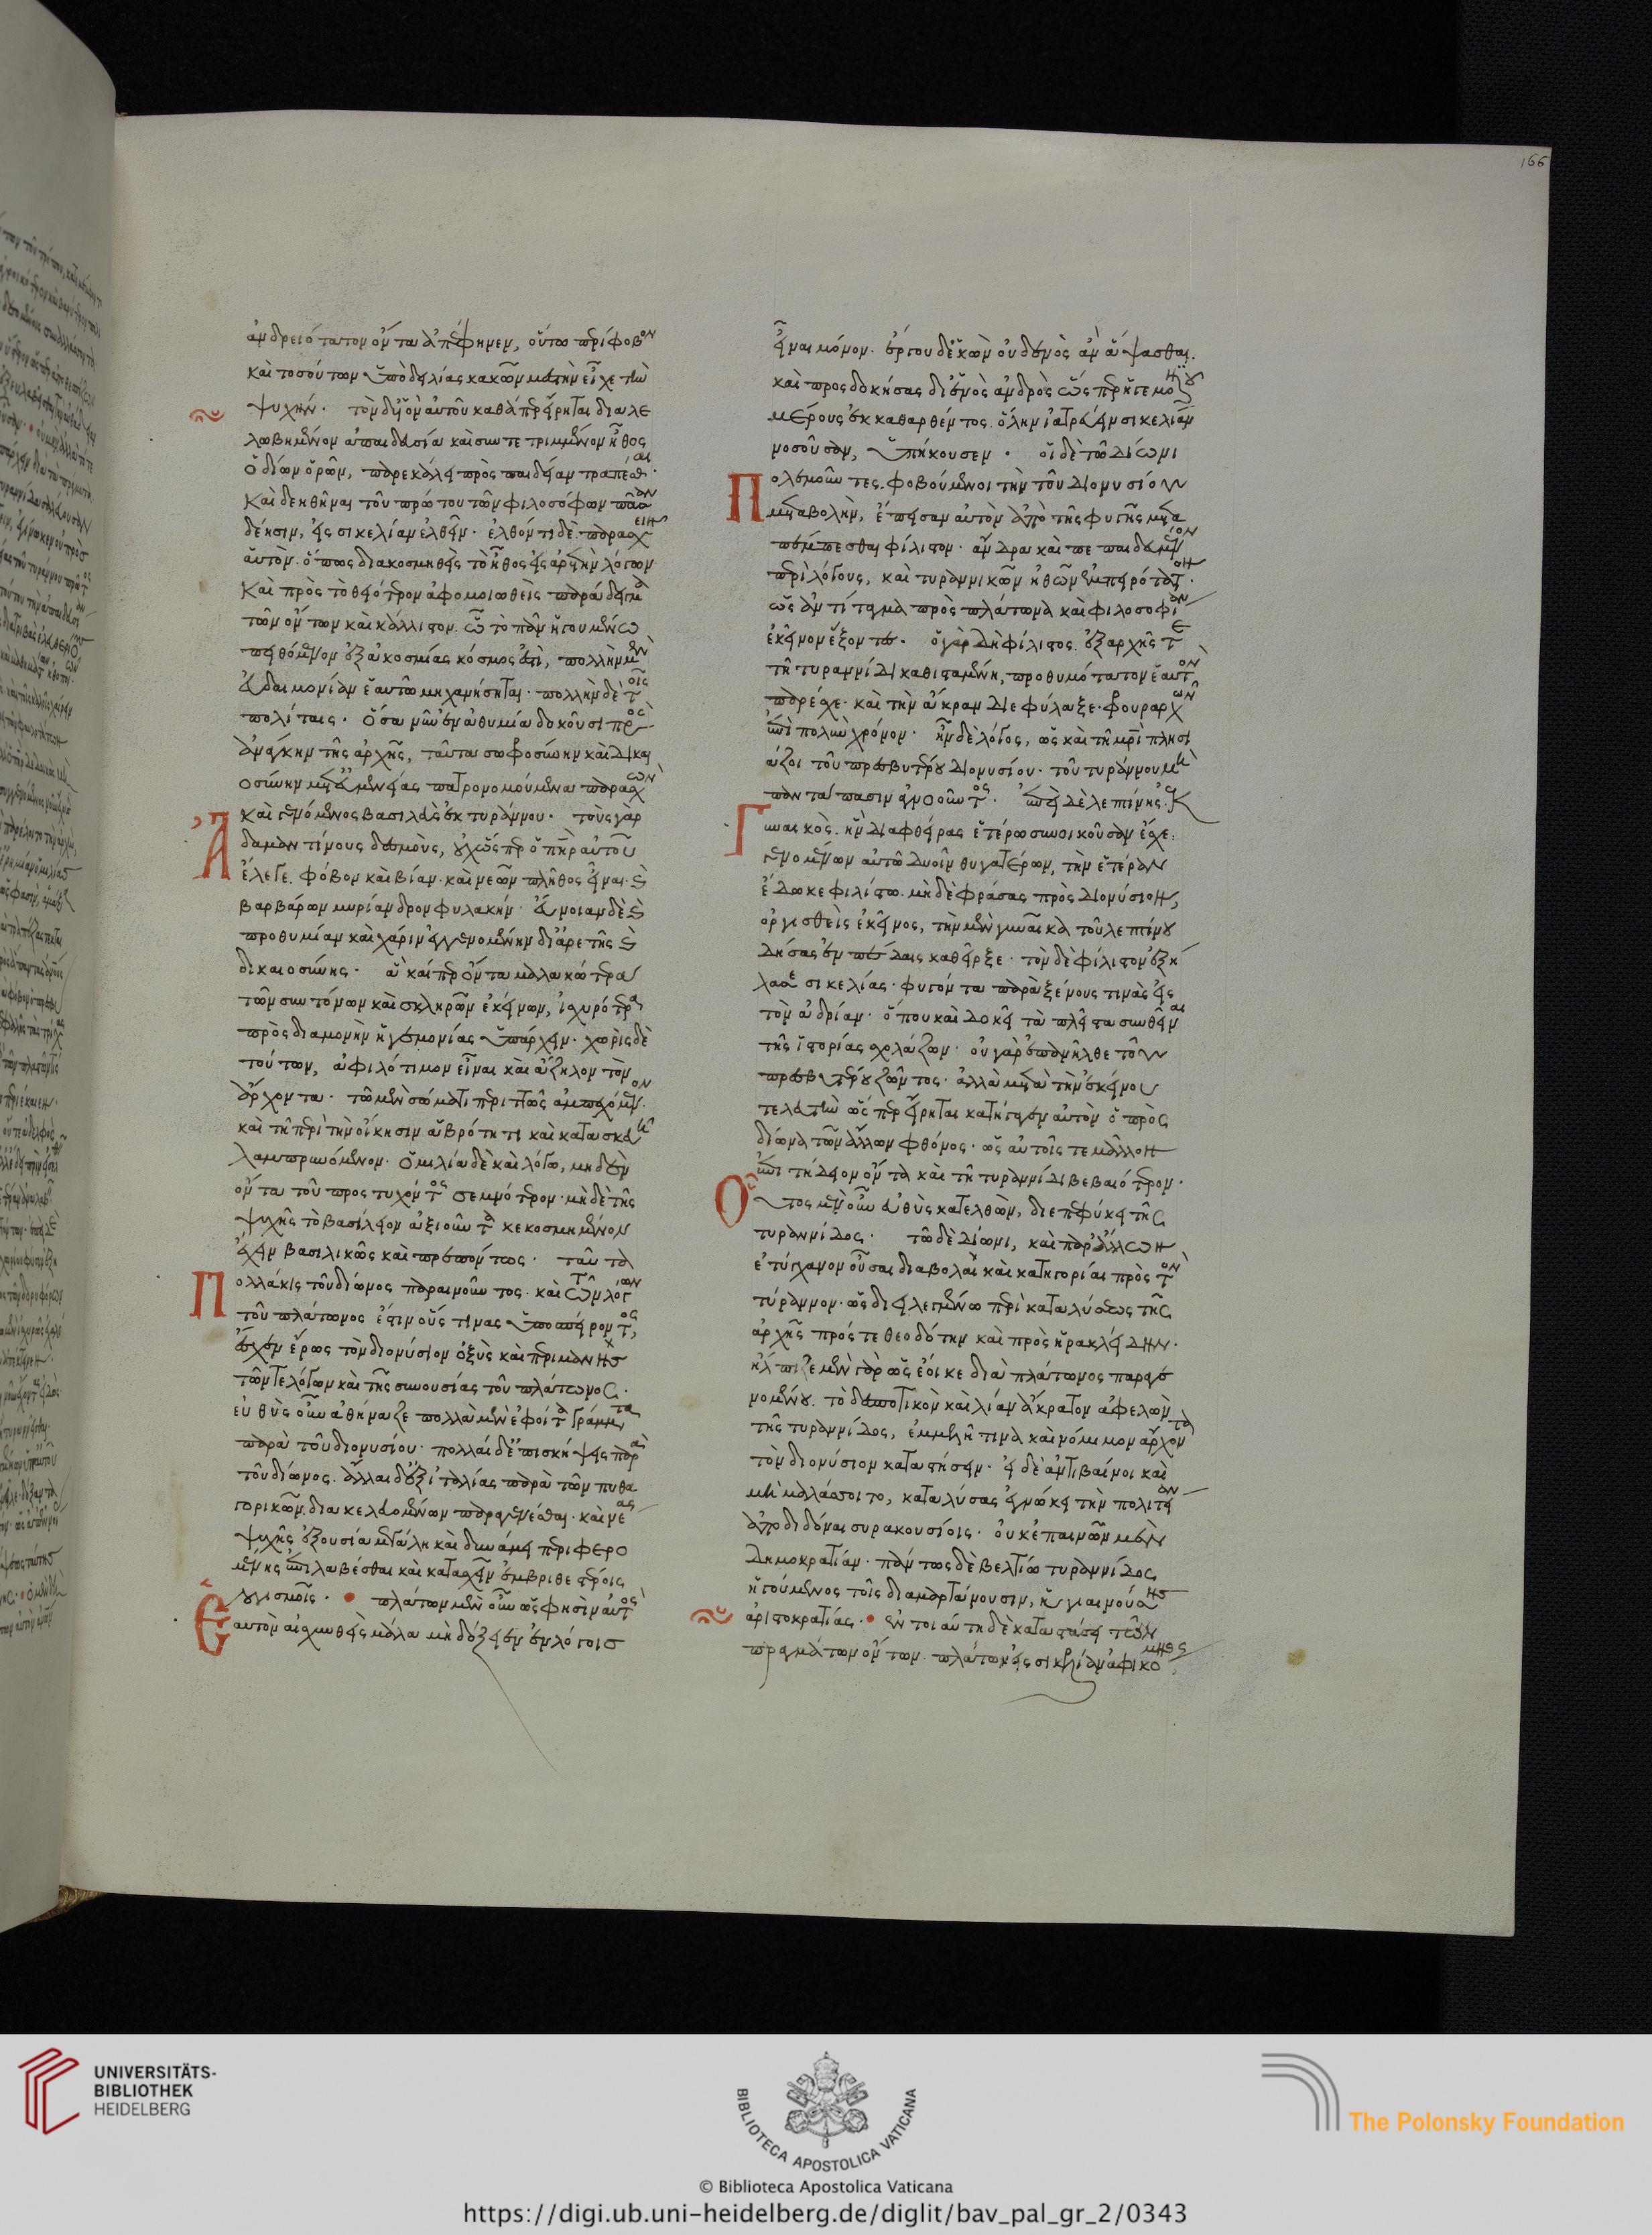 ἀνδρειότατον ὄντα ἀπέφηνεν, οὕτω περίφοβον
καὶ τοσούτων ὑπὸ δειλίας κακῶν μεστὴν εἶχε τὴν
ψυχήν. τὸν δ' υἱὸν αὐτοῦ καθάπερ εἴρηται διαλε
λωβημένον ἀπαιδευσία καὶ συντετριμμένον ἦθος
ὁ δίων ὁρῶν, παρεκάλει πρὸς παιδείαν τραπέσθαι.
καὶ δεηθῆναι τοῦ πρώτου τῶν φιλοσόφων πᾶσαν
δέησιν, εἰς σικελίαν ἐλθεῖν. ἐλθόντι δὲ παρασχεῖν
αὑτὸν. ὅπως διακοσμηθεὶς τὸ ἦθος εἰς ἀρετὴν λόγων
καὶ πρὸς τὸ θειότερον ἀφομοιωθεὶς παράδειγμα
τῶν ὄντων καὶ κάλλιστον. ὧ τὸ πᾶν ἡγουμένω
πειθόμενον ἐξ ἀκοσμίας κόσμος ἐστὶ, πολλὴν μὲν
εὐδαιμονίαν ἑαυτῶ μηχανήσηται. πολλὴν δὲ τοῖς
πολίταις. ὅσα νῦν ἐν ἀθυμία δοκοῦσι πρὸς
ἀνάγκην τῆς ἀρχῆς, ταῦτα σωφροσύνη καὶ δικαι
οσύνη μετ' εὐμενείας πατρονομούμενα παρασχὼν
καὶ γενόμενος βασιλεὺς ἐκ τυράννου. τοὺς γὰρ
Ἀδαμαντίνους δεσμοὺς, οὐχ ὥσπερ ὁ πατὴρ αὐτοῦ
ἔλεγε. φόβον καὶ βίαν. καὶ νεῶν πλῆθος εἶναι. καὶ
βαρβάρων μυρίανδρον φυλακήν. εὔνοιαν δὲ καὶ
προθυμίαν καὶ χάριν ἐγγενομένην δι' ἀρετῆς καὶ
δικαιοσύνης. ἃ καίπερ ὄντα μαλακώτερα
τῶν συντόνων καὶ σκληρῶν ἐκείνων, ἰσχυρότερα
πρὸς διαμονὴν ἡγεμονίας ὑπάρχειν. χωρὶς δὲ
τούτων, ἀφιλότιμον εἶναι καὶ ἄζηλον τὸν
ἄρχοντα. τῶ μὲν σώματι περιττῶς ἀμπεχόμενον.
καὶ τῆ περὶ τὴν οἴκησιν ἁβρότητι καὶ κατασκευῆ
λαμπρυνόμενον. ὁμιλία δὲ καὶ λόγω, μηδὲν
ὄντα τοῦ προστυχόντος σεμνότερον. μὴ δὲ τῆς
ψυχῆς τὸ βασίλειον ἀξιοῦντα κεκοσμημένον
ἔχειν βασιλικῶς καὶ πρεπόντως. ταῦτα
Πολλάκις τοῦ δίωνος παραινοῦντος. καὶ τῶν λόγων
τοῦ πλάτωνος ἔστιν οὕς τινας ὑποσπείροντος,
ἔσχεν ἔρως τὸν διονύσιον ὀξὺς καὶ περιμανὴς
τῶν τε λόγων καὶ τῆς συνουσίας τοῦ πλάτωνος.
εὐθὺς οὖν ἀθήναζε πολλὰ μὲν ἐφοίτα γράμματα
παρὰ τοῦ διονυσίου. πολλαὶ δ' ἐπισκήψεις παρὰ
τοῦ δίωνος. ἄλλαι δ' ἐξ ἰταλίας παρὰ τῶν πυθα
γορικῶν. διακελευομένων παραγενέσθαι. καὶ νέας
ψυχῆς ἐξουσία μεγάλη καὶ δυνάμει περιφερο
μένης ἐπιλαβέσθαι καὶ κατασχεῖν ἐμβριθεστέροις
λογισμοῖς. πλάτων μὲν οὖν ὥς φησὶν αὐτὸς
Ἑαυτὸν αἰσχυνθεὶς μάλα μὴ δόξειεν ἐν λόγοις
εἶναι μόνον. ἔργου δ' ἑκὼν οὐδενὸς ἂν ἅψασθαι.
καὶ προσδοκήσας δι' ἑνὸς ἀνδρὸς ὥσπερ ἡγεμονικοῦ
μέρους ἐκκαθαρθέντος. ὅλην ἰατρεύειν σικελίαν
νοσοῦσαν, ὑπήκουσεν. οἱ δὲ τῶ δίωνι
Πολεμοῦντες. φοβούμενοι τὴν τοῦ διονυσίου
μεταβολὴν, ἔπεισαν αὐτὸν ἀπὸ τῆς φυγῆς μετα
πέμπεσθαι φίλιστον. ἄνδρα καὶ πεπαιδευμένον
περὶ λόγους, καὶ τυραννικῶν ἠθῶν ἐμπειρότατον.
ὡς ἀντίταγμα πρὸς πλάτωνα καὶ φιλοσοφίαν
ἐκεῖνον ἕξοντες. ὁ γὰρ δὴ φίλιστος. ἐξ ἀρχῆς τε
τῆ τυραννίδι καθισταμένη, προθυμότατον ἑαυτὸν
παρέσχε. καὶ τὴν ἄκραν διεφύλαξε. φρουραρχῶν
ἐπὶ πολὺν χρόνον. ἦν δὲ λόγος, ὡς καὶ τῆ μητρὶ πλησι
άζοι τοῦ πρεσβυτέρου διονυσίου. τοῦ τυράννου μὴ
παντάπασιν ἀγνοοῦντος. ἐπεὶ δὲ λεπτίνης ἐκ
Γυναικὸς. ἣν διαφθείρας ἑτέρω συνοικοῦσαν ἔσχε.
γενομένων αὐτῶ δυοῖν θυγατέρων, τὴν ἑτέραν
ἔδωκε φιλίστω. μηδὲ φράσας πρὸς διονύσιον,
ὀργισθεὶς ἐκεῖνος, τὴν μὲν γυναῖκα τοῦ λεπτίνου
δήσας ἐν πέδαις καθεῖρξε. τὸν δὲ φίλιστον ἐξή
λασε σικελίας. φυγόντα παρὰ ξένους τινὰς εἰς
τὸν ἀδρίαν. ὅπου καὶ δοκεῖ τὰ πλεῖστα συνθεῖναι
τῆς ἱστορίας σχολάζων. οὐ γὰρ ἐπανῆλθε τοῦ
πρεσβυτέρου ζῶντος. ἀλλὰ μετὰ τὴν ἐκείνου
τελευτὴν ὥσπερ εἴρηται κατήγαγεν αὐτὸν ὁ πρὸς
δίωνα τῶν ἄλλων φθόνος. ὡς αὐτοῖς τε μᾶλλον
ἐπιτήδειον ὄντα καὶ τῆ τυραννίδι βεβαιότερον.
Οὗτος μὲν οὖν εὐθὺς κατελθὼν, διεπεφύκει τῆς
τυραννίδος. τῶ δὲ δίωνι, καὶ παρ' ἄλλων
ἐτύγχανον οὖσαι διαβολαὶ καὶ κατηγορίαι πρὸς τὸν
τύραννον. ὡς διειλεγμένω περὶ καταλύσεως τῆς
ἀρχῆς πρός τε θεοδότην καὶ πρὸς ἡρακλείδην.
ἤλπιζε μὲν γὰρ ὡς ἔοικε διὰ πλάτωνος παραγε
νομένου. τὸ δεσποτικὸν καὶ λίαν ἄκρατον ἀφελὼν
τῆς τυραννίδος, ἐμμελῆ τινα καὶ νόμιμον ἄρχοντα
τὸν διονύσιον καταστήσειν. εἰ δ' ἀντιβαίνοι καὶ
μὴ μαλάσσοιτο, καταλύσας ἐγνώκει τὴν πολιτείαν
ἀποδιδόναι συρακουσίοις. οὐκ ἐπαινῶν μὲν
δημοκρατίαν. πάντως δὲ βελτίω τυραννίδος
ἡγούμενος τοῖς διαμαρτάνουσιν, ὑγιαινούσης
ἀριστοκρατίας. ἐν τοιαύτη δὲ καταστάσει τῶν
πραγμάτων ὄντων. πλάτων εἰς σικελίαν ἀφικόμενος
166
UNIVERSITÄTS-
BIBLIOTHEK
HEIDELBERG
BIBLIOTECA APOSTOLICA VATICANA
The Polonsky Foundation
© Biblioteca Apostolica Vaticana
https://digi.ub.uni-heidelberg.de/diglit/bav_pal_gr_2/0343